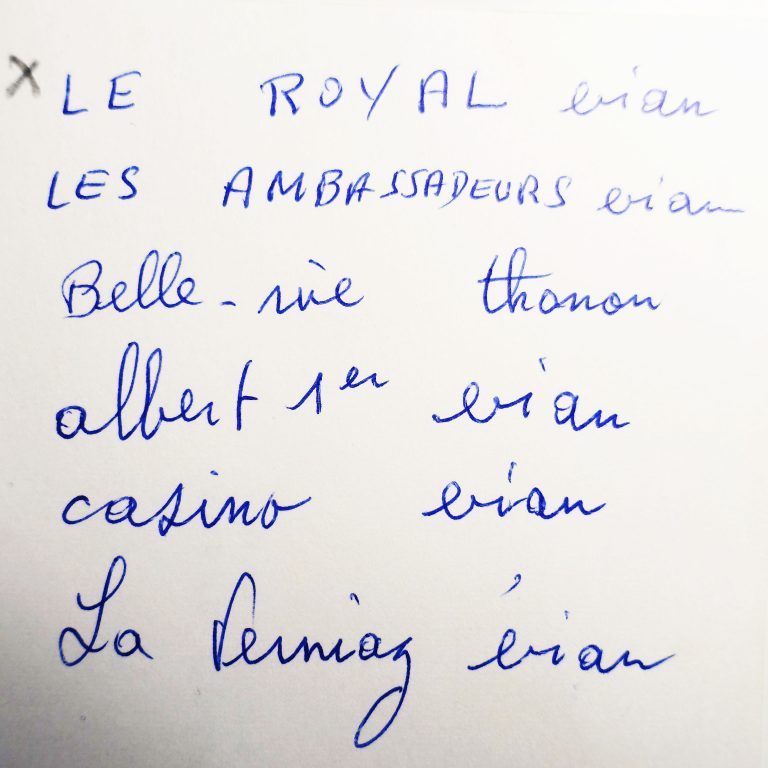 x LE ROYAL evian
LES AMBASSADEURS evian
Belle-rive thonon
albert 1er evian
casino evian
La Verniaz évian